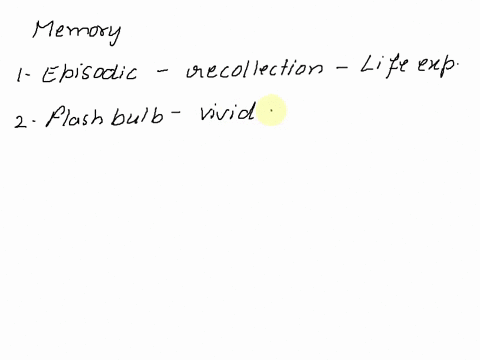 Memory
1. Episodic - recollection - Life exp.
2. Flash bulb - vivid